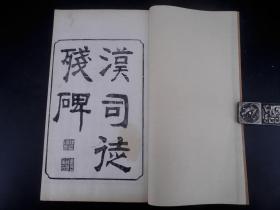 漢司徒
殘碑